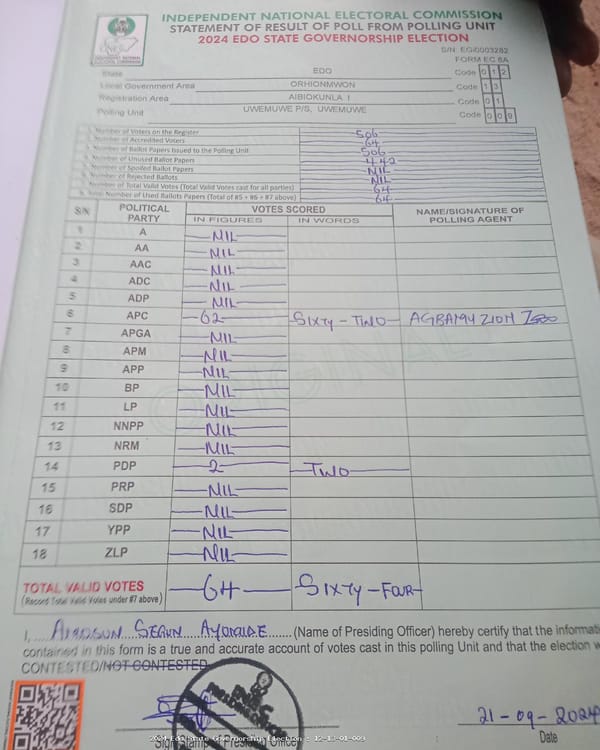 INDEPENDENT NATIONAL ELECTORAL COMMISSION
STATEMENT OF RESULT OF POLL FROM POLLING UNIT
2024 EDO STATE GOVERNORSHIP ELECTION
S/N EG0003282
FORM EC 8A
State EDO Code 0 1 2
Local Government Area ORHIONMWON Code 1 3
Registration Area AIBIOKUNLA I Code 0 1
Polling Unit UWEMUWE P/S, UWEMUWE Code 0 0 9
Number of Voters on the Register 506
Number of Accredited Voters 64
Number of Ballot Papers Issued to the Polling Unit 506
Number of Unused Ballot Papers 442
Number of Spoiled Ballot Papers NIL
Number of Rejected Ballots NIL
Number of Total Valid Votes (Total Valid Votes cast for all parties) 64
Total Number of Used Ballots Papers (Total of #5 + #6 + #7 above) 64
S/N POLITICAL PARTY VOTES SCORED NAME/SIGNATURE OF POLLING AGENT
IN FIGURES IN WORDS
1 A NIL
2 AA NIL
3 AAC NIL
4 ADC NIL
5 ADP NIL
6 APC 62 SIXTY-TWO AGBAMU ZION
7 APGA NIL
8 APM NIL
9 APP NIL
10 BP NIL
11 LP NIL
12 NNPP NIL
13 NRM NIL
14 PDP 2 TWO
15 PRP NIL
16 SDP NIL
17 YPP NIL
18 ZLP NIL
TOTAL VALID VOTES 64 SIXTY-FOUR
(Record Total Valid Votes under #7 above)
I, SEGUN (Name of Presiding Officer) hereby certify that the informati
contained in this form is a true and accurate account of votes cast in this polling Unit and that the election w
CONTESTED/NOT CONTESTED
21-09-2024
2024 Edo State Governorship Election : 12-13-01-009
Date